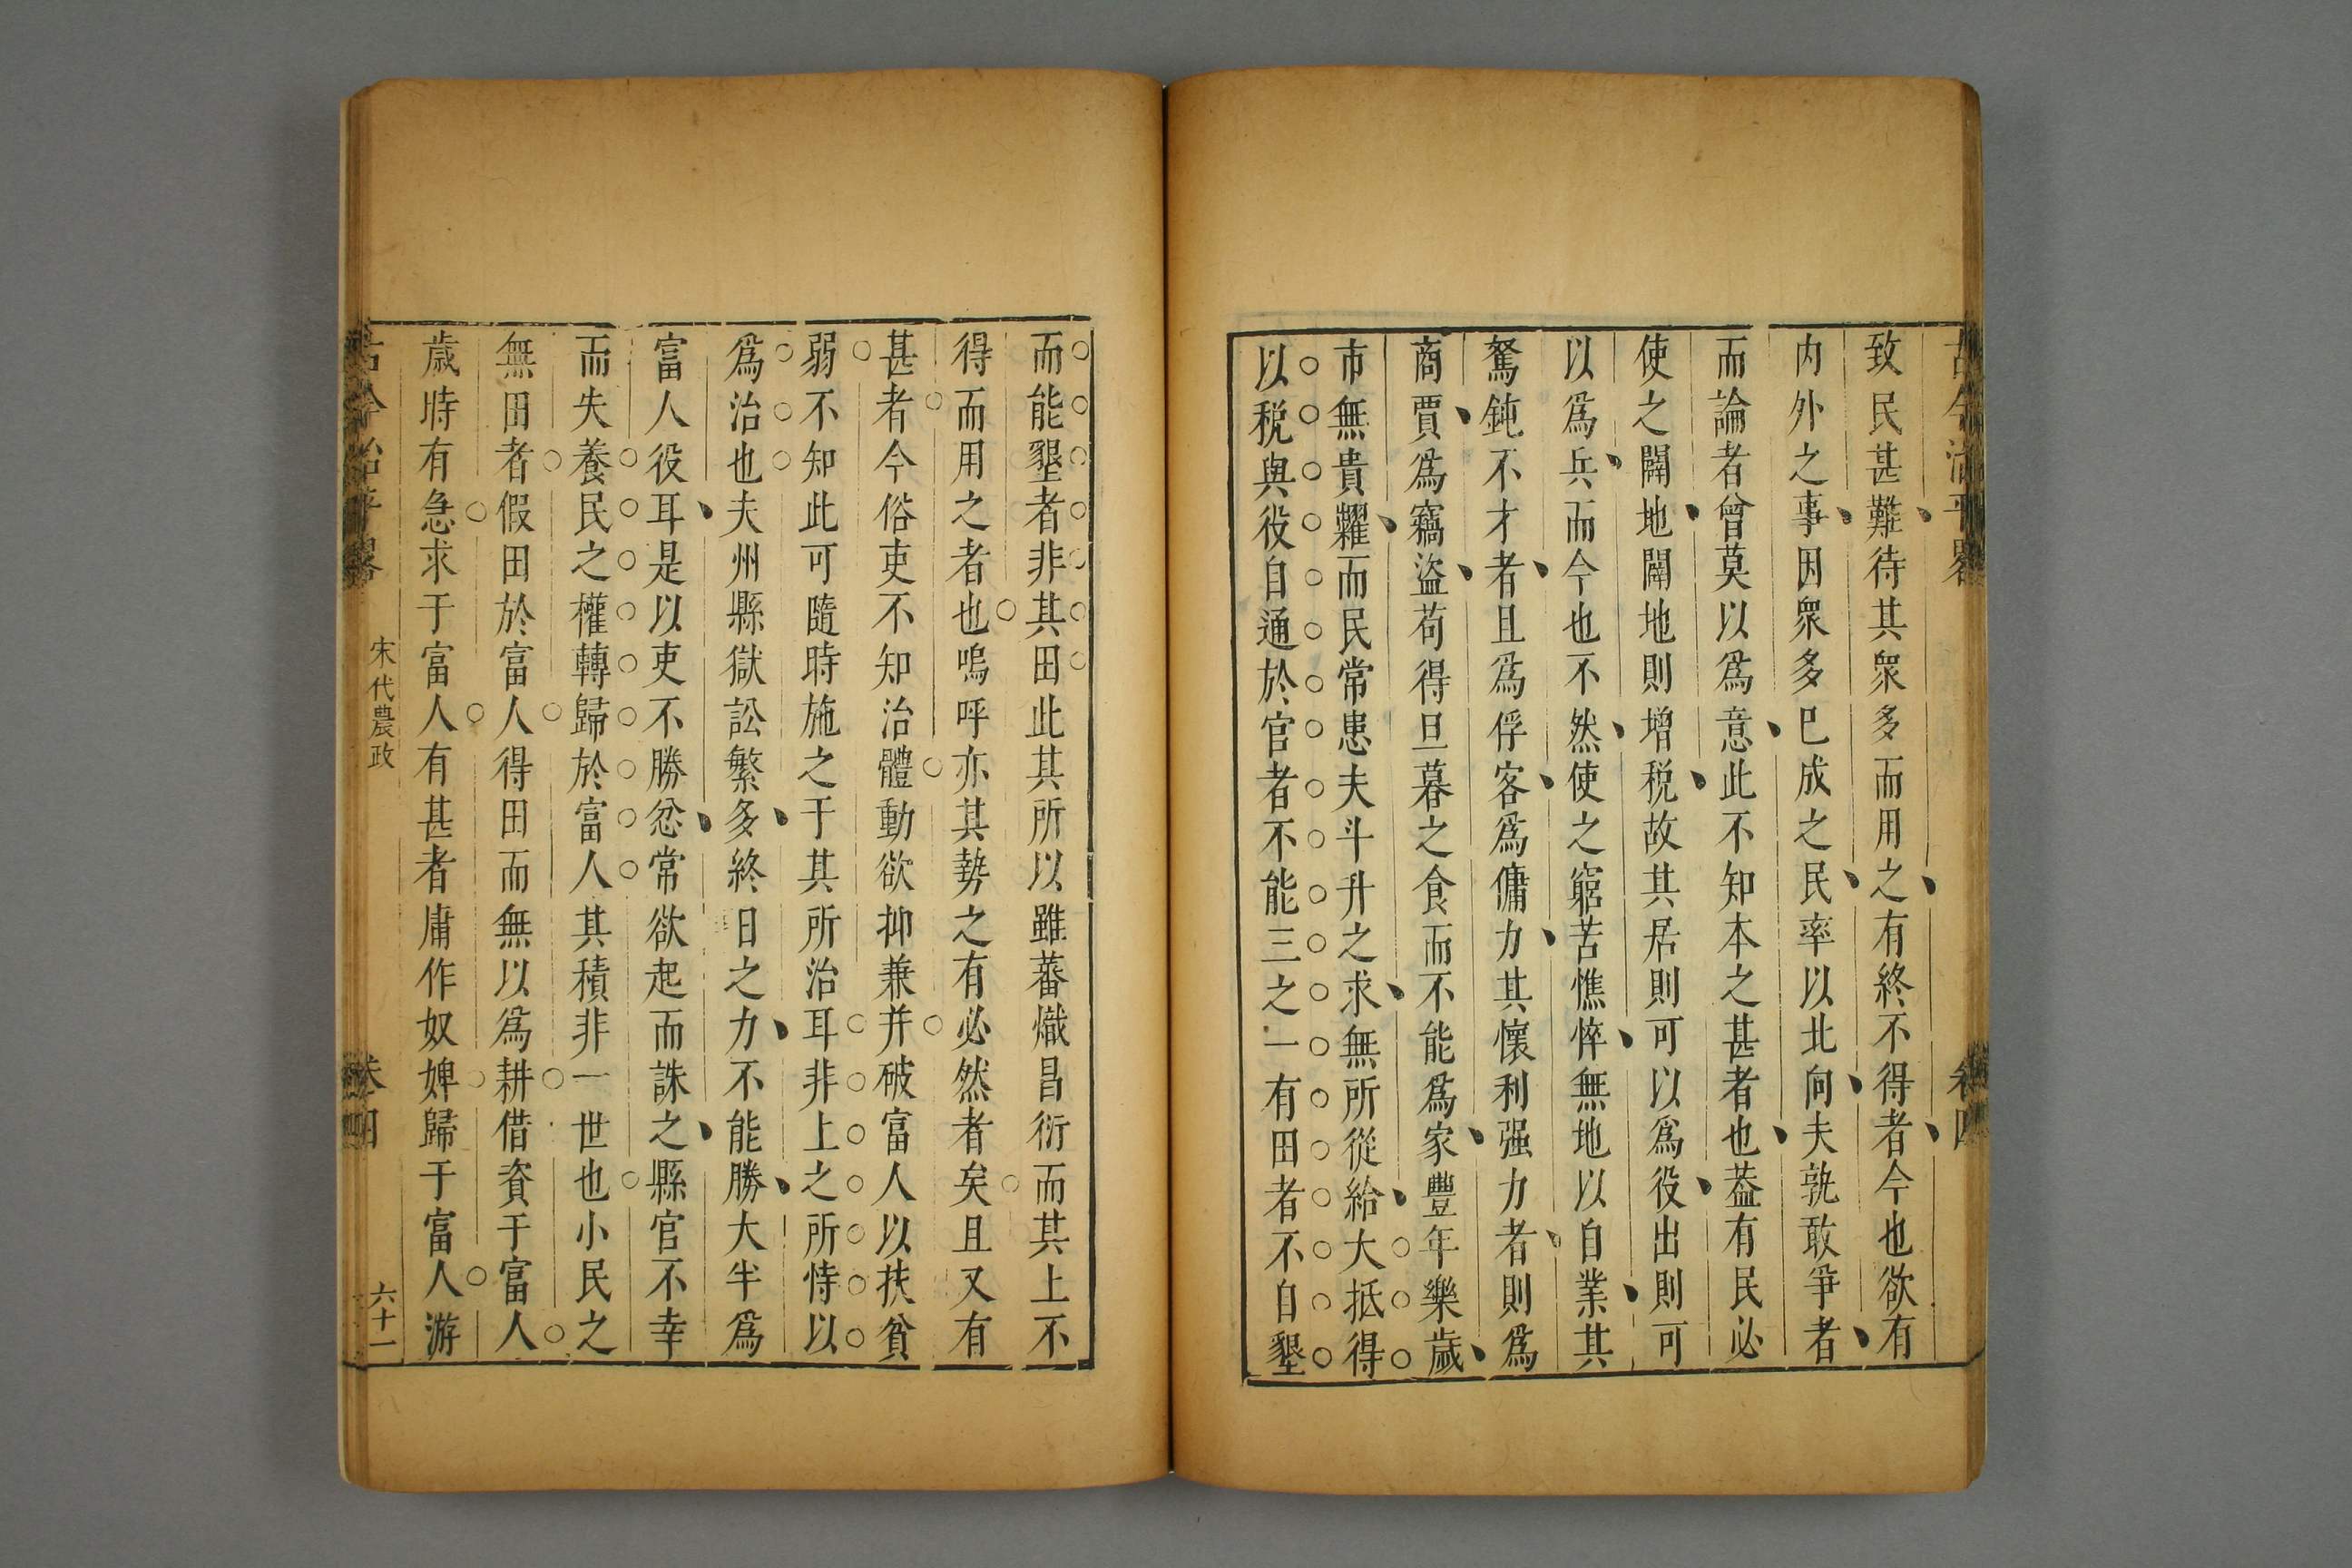 古今治平畧
卷四
致民甚難待其衆多而用之有終不得者今也欲有
内外之事因衆多已成之民率以北向夫孰敢爭者
而論者曾莫以爲意此不知本之甚者也葢有民必
使之闢地闢地則增税故其居則可以爲役出則可
以爲兵而今也不然使之窮苦憔悴無地以自業其
駑鈍不才者且爲俘客爲傭力其懷利强力者則爲
商賈爲竊盜苟得旦暮之食而不能爲家豐年樂歲
市無貴糶而民常患夫斗升之求無所從給大抵得
以税與役自通於官者不能三之一有田者不自墾
而能墾者非其田此其所以雖蕃熾昌衍而其上不
得而用之者也嗚呼亦其勢之有必然者矣且又有
甚者今俗吏不知治體動欲抑兼并破富人以扶貧
弱不知此可隨時施之于其所治耳非上之所恃以
爲治也夫州縣獄訟繁多終日之力不能勝大半爲
富人役耳是以吏不勝忿常欲起而誅之縣官不幸
而失養民之權轉歸於富人其積非一世也小民之
無田者假田於富人得田而無以爲耕借資于富人
歲時有急求于富人有甚者庸作奴婢歸于富人游
古今治平畧
宋代農政
卷四
六十一